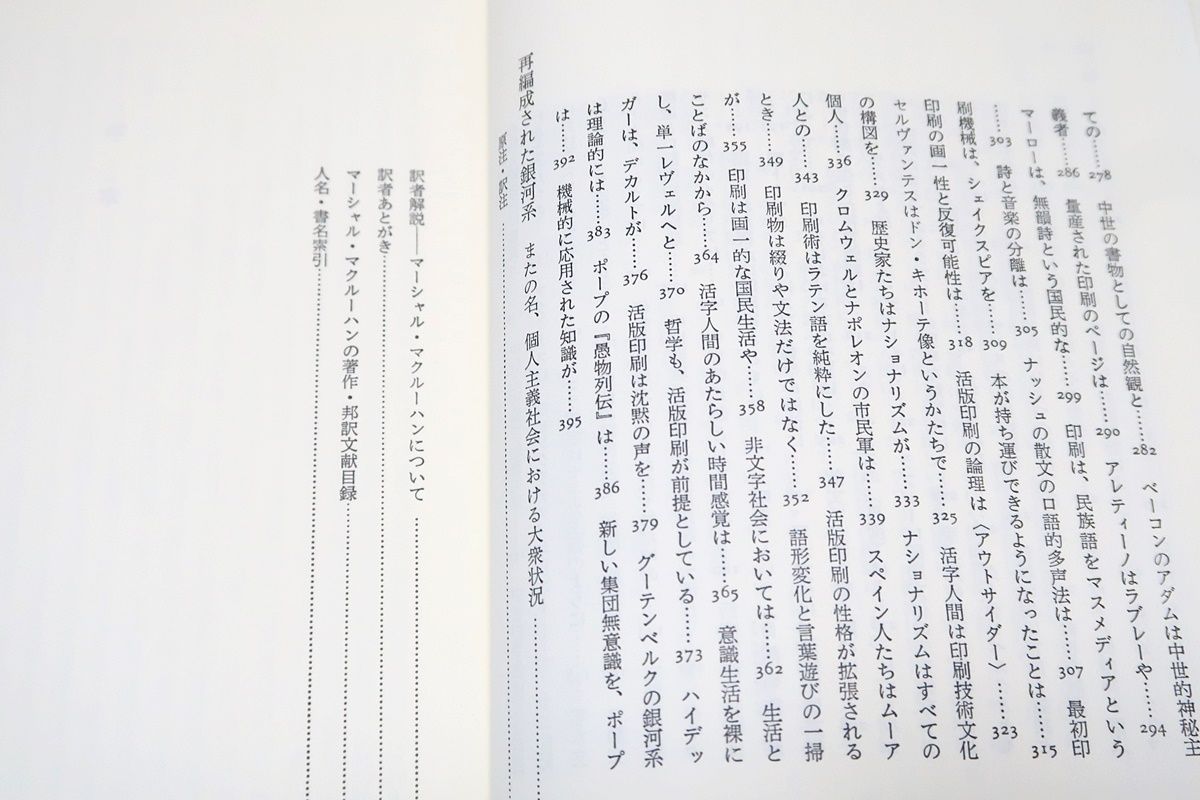 ての……278　中世の書物としての自然観と……282　ベーコンのアダムは中世的神秘主
義者……286　量産された印刷のページは……290　アレティーノはラブレーや……294
マーローは、無韻詩という国民的な……299　印刷は、民族語をマスメディアという
……303　詩と音楽の分離は……305　ナッシュの散文の口語的多声法は……307　最初印
刷機械は、シェイクスピアを……309　本が持ち運びできるようになったことは……315
印刷の画一性と反復可能性は……318　活版印刷の論理は〈アウトサイダー〉……323
セルヴァンテスはドン・キホーテ像というかたちで……325　活字人間は印刷技術文化
の構図を……329　歴史家たちはナショナリズムが……333　ナショナリズムはすべての
個人……336　クロムウェルとナポレオンの市民軍は……339　スペイン人たちはムーア
人との……343　印刷術はラテン語を純粋にした……347　活版印刷の性格が拡張される
とき……349　印刷物は綴りや文法だけではなく……352　語形変化と言葉遊びの一掃
が……355　印刷は画一的な国民生活や……358　非文字社会においては……362　生活と
ことばのなかから……364　活字人間のあたらしい時間感覚は……365　意識生活を裸に
し、単一レヴェルへと……370　哲学も、活版印刷が前提としている……373　ハイデッ
ガーは、デカルトが……376　活版印刷は沈黙の声を……379　グーテンベルクの銀河系
は理論的には……383　ポープの『愚物列伝』は……386　新しい集団無意識を、ポープ
は……392　機械的に応用された知識が……395
再編成された銀河系　またの名、個人主義社会における大衆状況……
原注・訳注……
訳者解説――マーシャル・マクルーハンについて……
訳者あとがき……
マーシャル・マクルーハンの著作・邦訳文献目録……
人名・書名索引……